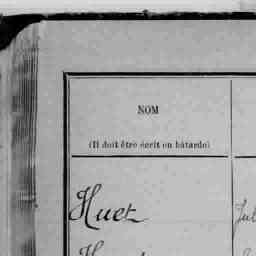 NOM
(Il doit être écrit en bâtarde)
Huet Jul